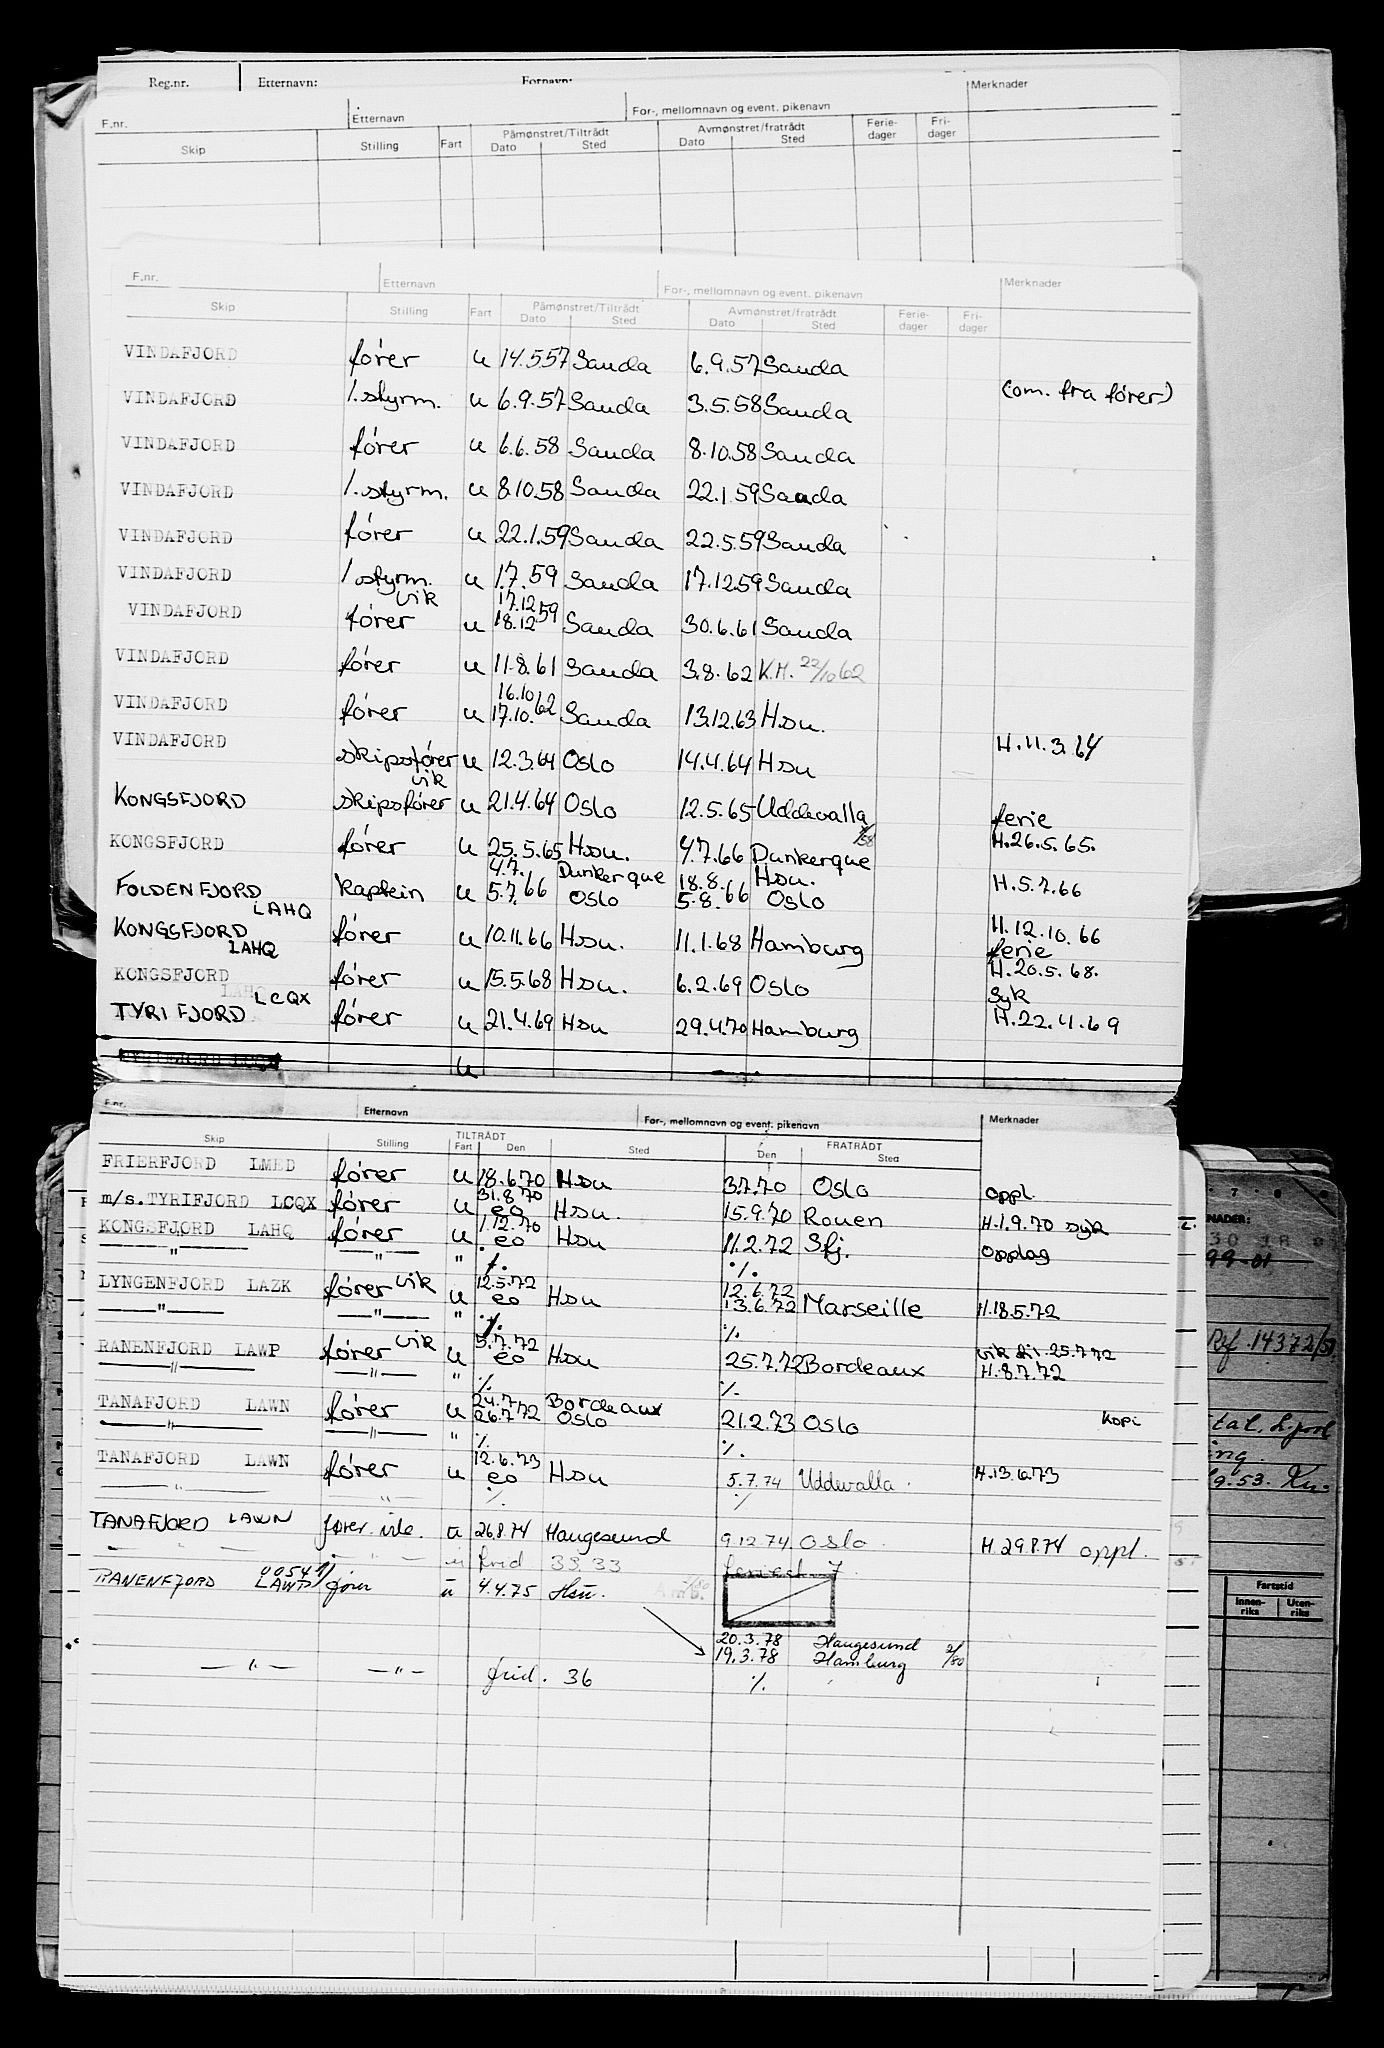 Reg.nr. Etternavn: Fornavn:
F.nr. Etternavn For-, mellomnavn og event. pikenavn Merknader
Skip Stilling Fart Påmønstret/Tiltrådt Dato Sted Avmønstret/fratrådt Dato Sted Ferie-dager Fri-dager
F.nr. Etternavn For-, mellomnavn og event. pikenavn Merknader
Skip Stilling Fart Påmønstret/Tiltrådt Dato Sted Avmønstret/fratrådt Dato Sted Ferie-dager Fri-dager
VINDAFJORD fører u 14.5.57 Sauda 6.9.57 Sauda
VINDAFJORD 1.styrm. u 6.9.57 Sauda 3.5.58 Sauda (om. fra fører)
VINDAFJORD fører u 6.6.58 Sauda 8.10.58 Sauda
VINDAFJORD 1.styrm. u 8.10.58 Sauda 22.1.59 Sauda
VINDAFJORD fører u 22.1.59 Sauda 22.5.59 Sauda
VINDAFJORD 1 styrm. u 1.7.59 Sauda 17.12.59 Sauda
VINDAFJORD vik fører u 17.12 18.12 59 Sauda 30.6.61 Sauda
VINDAFJORD fører u 11.8.61 Sauda 3.8.62 K.H. 22/10 62
VINDAFJORD fører u 16.10 17.10. 62 Sauda 13.12.63 Hsu.
VINDAFJORD skipsfører u 12.3.64 Oslo 14.4.64 Hsu H.11.3.64
KONGSFJORD vik skipsfører u 21.4.64 Oslo 12.5.65 Uddevalla ferie
KONGSFJORD fører u 25.5.65 Hsu. 4.7.66 Dunkerque H.26.5.65.
FOLDENFJORD kaptein u 4.7. 5.7.66 Dunkerque Oslo 18.8. 5.8.66 Hsu. Oslo H.5.7.66
LAHQ
KONGSFJORD fører u 10.11.66 Hsu. 11.1.68 Hamburg H.12.10.66 ferie
LAHQ
KONGSFJORD fører u 15.5.68 Hsu. 6.2.69 Oslo H.20.5.68. syk
LCQX
TYRIFJORD fører u 21.4.69 Hsu 29.4.70 Hamburg H.22.4.69
u
F.nr. Etternavn For-, mellomnavn og event. pikenavn Merknader
Skip Stilling TILTRÅDT Fart Den Sted FRATRÅDT Den Sted
FRIERFJORD LMED fører u 18.6.70 Hsu 3.7.70 Oslo oppl.
m/s.TYRIFJORD LCQX fører u 31.8.70 eo Hsu. 15.9.70 Rouen H.1.9.70 syk
KONGSFJORD LAHQ fører u 1.12.70 eo Hsu 11.2.72 Sfj. Opplag
—"— —"— " ./. ./.
LYNGENFJORD LAZK fører vik u 12.5.72 eo Hsu 12.6.72 13.6.72 Marseille H.18.5.72
—"— —"— " ./. ./.
RANENFJORD LAWP fører vik u 5.7.72 eo Hsu 25.7.72 Bordeaux vik til 25.7.72 H.8.7.72
—"— —"— " ./. ./.
TANAFJORD LAWN fører u 24.7 26.7.72 Bordeaux Oslo 21.2.73 Oslo kopi
—"— —"— " ./. ./.
TANAFJORD LAWN fører u 12.6.73 eo Hsu 5.7.74 Uddevalla. H.13.6.73
—"— " ./. ./.
TANAFJORD LAWN fører u 26.8.74 Haugesund 9.12.74 Oslo H.29.8.74 oppl.
frid 33.33
RANENFJORD LAWP fører u 4.4.75 Hsu.
20.3.78 Haugesund
19.3.78 Hamburg 2/80
—"— —"— frid. 36 ./.
NADER:
99-01
Rf. 14372/50
Fartstid
Innen-riks Uten-riks